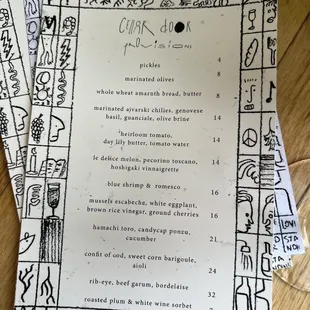 CELLAR DOOR
provisions
pickles 4
marinated olives 8
whole wheat amarnth bread, butter 8
marinated ajvarski chilies, genovese
basil, guanciale, olive brine 14
heirloom tomato,
day lily butter, tomato water 14
le delice melon, pecorino toscano,
hoshigaki vinnaigrette 14
blue shrimp & romesco 16
mussels escabeche, white eggplant,
brown rice vinegar, ground cherries 16
hamachi toro, candycap ponzu,
cucumber 21
confit of cod, sweet corn barigoule,
aioli 24
rib-eye, beef garum, bordelaise 32
roasted plum & white wine sorbet 7
LOVE
STA
ND